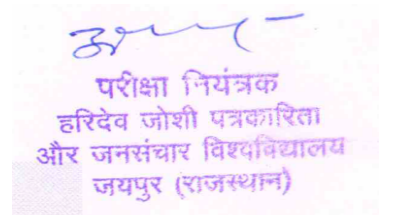 परीक्षा नियंत्रक
हरिदेव जोशी पत्रकारिता
और जनसंचार विश्वविद्यालय
जयपुर (राजस्थान)